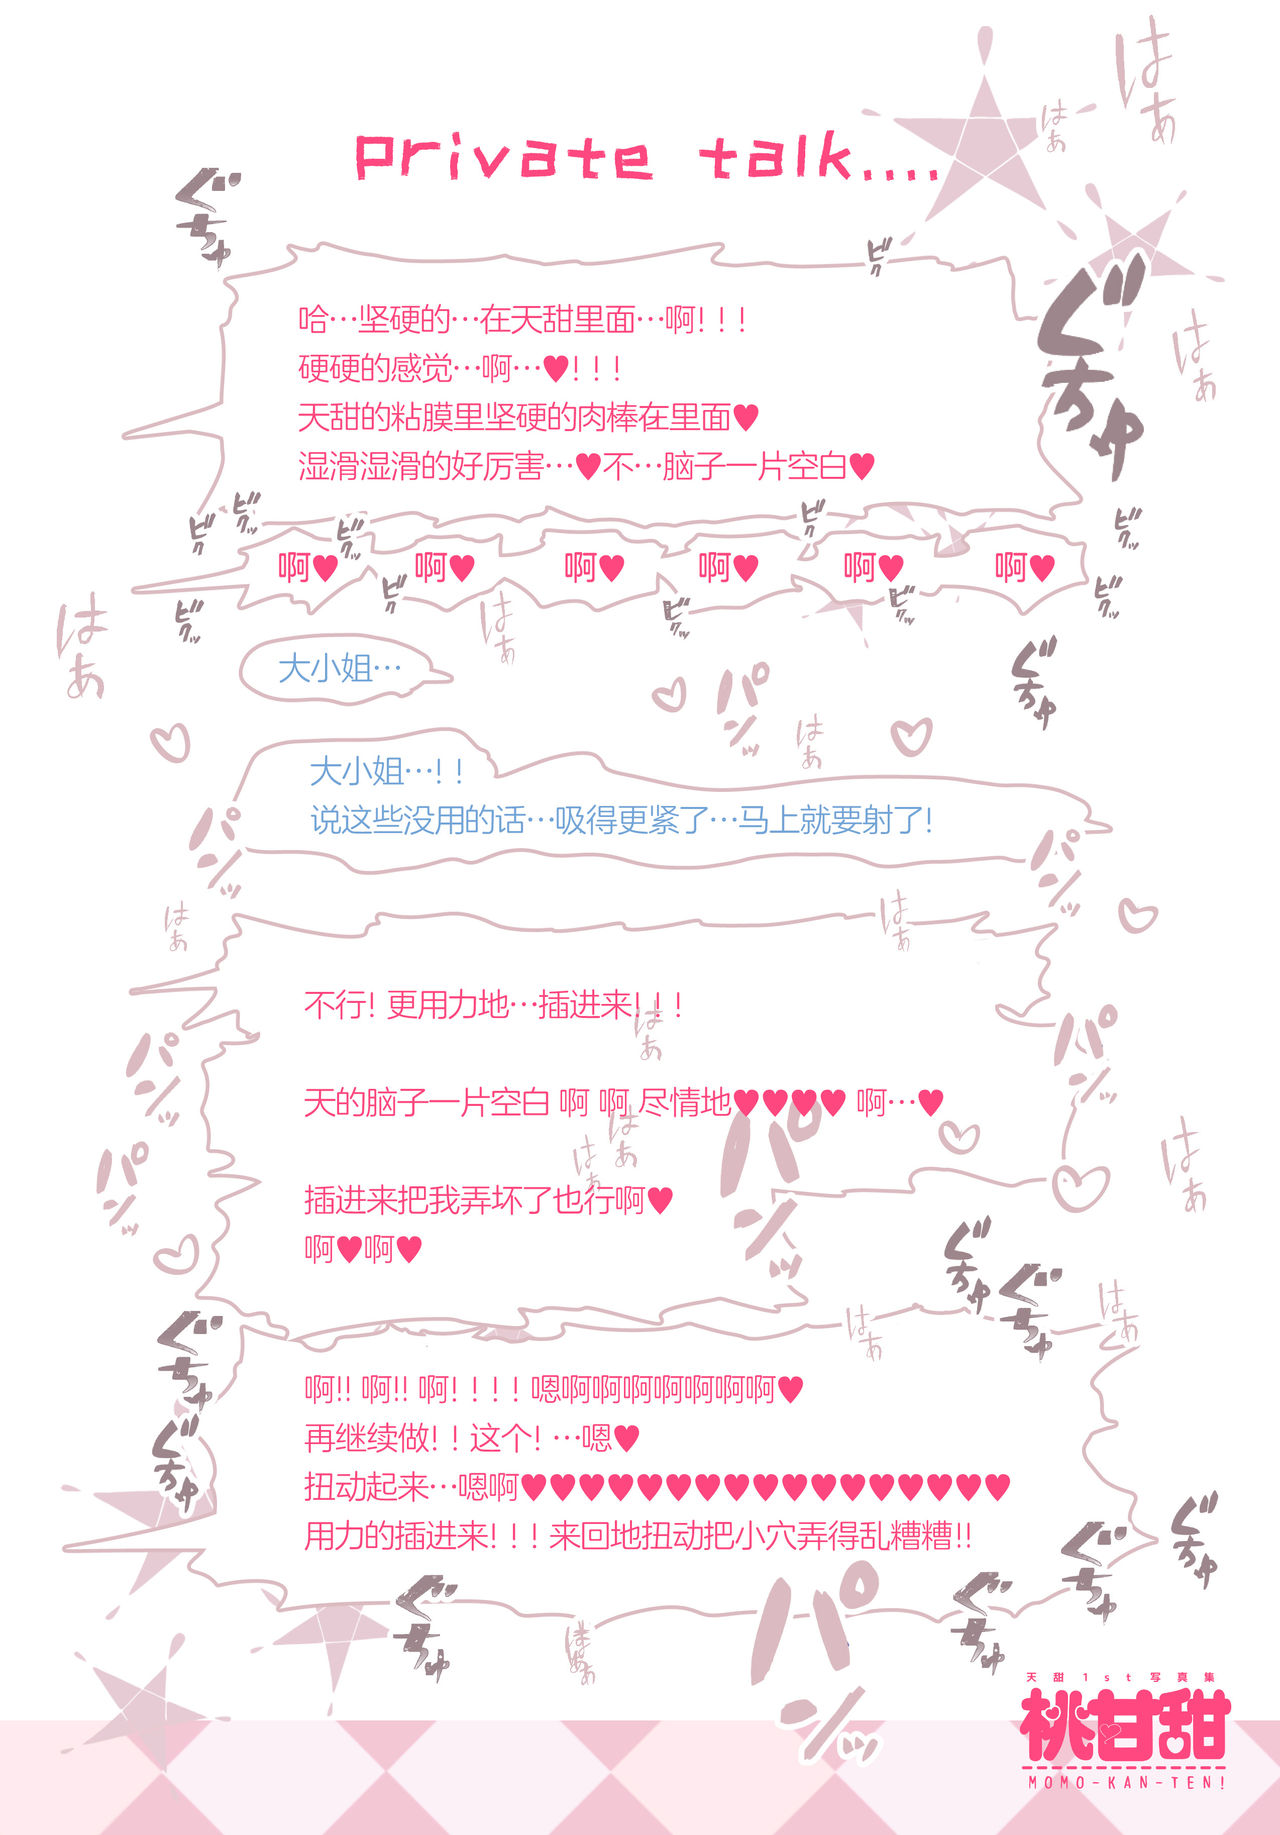 private talk....
哈…坚硬的…在天甜里面…啊!!!
硬硬的感觉…啊…♥!!!
天甜的粘膜里坚硬的肉棒在里面♥
湿滑湿滑的好厉害…♥不…脑子一片空白♥
啊♥ 啊♥ 啊♥ 啊♥ 啊♥ 啊♥
大小姐…
大小姐…!!
说这些没用的话…吸得更紧了…马上就要射了!
不行!更用力地…插进来!!!
天的脑子一片空白 啊 啊 尽情地♥♥♥♥ 啊…♥
插进来把我弄坏了也行啊♥
啊♥啊♥
啊!! 啊!! 啊!!!! 嗯啊啊啊啊啊啊啊♥
再继续做!!这个!…嗯♥
扭动起来…嗯啊♥♥♥♥♥♥♥♥♥♥♥♥♥♥♥♥♥
用力的插进来!!!来回地扭动把小穴弄得乱糟糟!!
はぁ
はぁ
ぐちゅ
ビク
ぐちゅ
はぁ
ビクッ
ビク
ビクッ
ビク
ビクッ
ビク
ビクッ
ビクッ
ビクッ
ビクッ
はぁ
はぁ
ぐちゅ
パンッ
はぁ
パンッ
パンッ
はぁ
はぁ
はぁ
パンッ
パンッ
はぁ
はぁ
パンッ
パンッ
はぁ
ぐちゅ
ぐちゅ
はぁ
はぁ
ぐちゅ
ぐちゅ
ぐちゅ
ぐちゅ
ぐちゅ
ぐちゅ
はぁ
パンッ
天甜1st写真集
桃甘甜
MOMO-KAN-TEN!